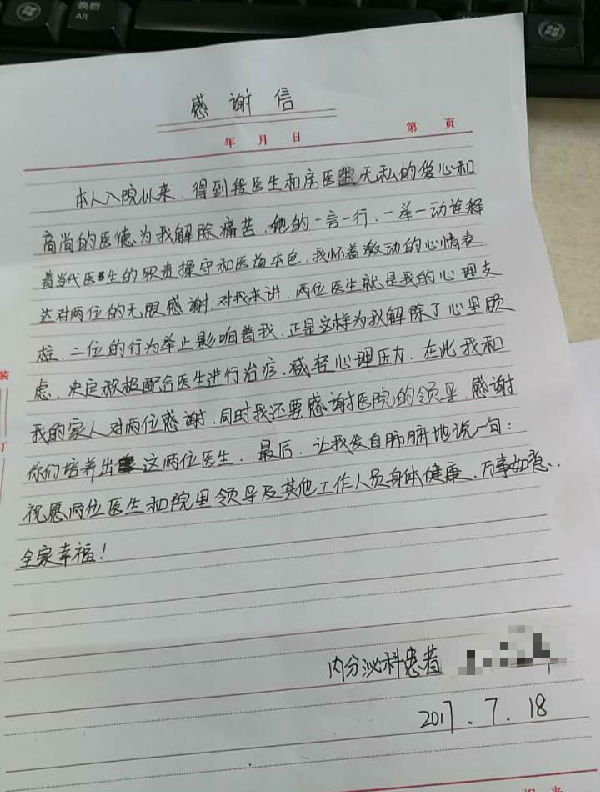 换档
Alt
感谢信
年 月 日 第 页
本人入院以来，得到接医生和房医生无私的爱心和
高尚的医德为我解除痛苦，她的一言一行，一举一动诠释
着当代医生的职责操守和医德本色，我怀着激动的心情表
达对两位的无限感谢，对我来讲，两位医生就是我的心理支
柱，二位的行为举止影响着我，正是这样为我解除了心里顾
虑，决定积极配合医生进行治疗，减轻心理压力，在此我和
我的家人对两位感谢，同时我还要感谢医院的领导，感谢
你们培养出这两位医生，最后，让我发自肺腑地说一句：
祝愿两位医生和院里领导及其他工作人员身体健康，万事如意，
全家幸福！
装
订
内分泌科患者
2017.7.18